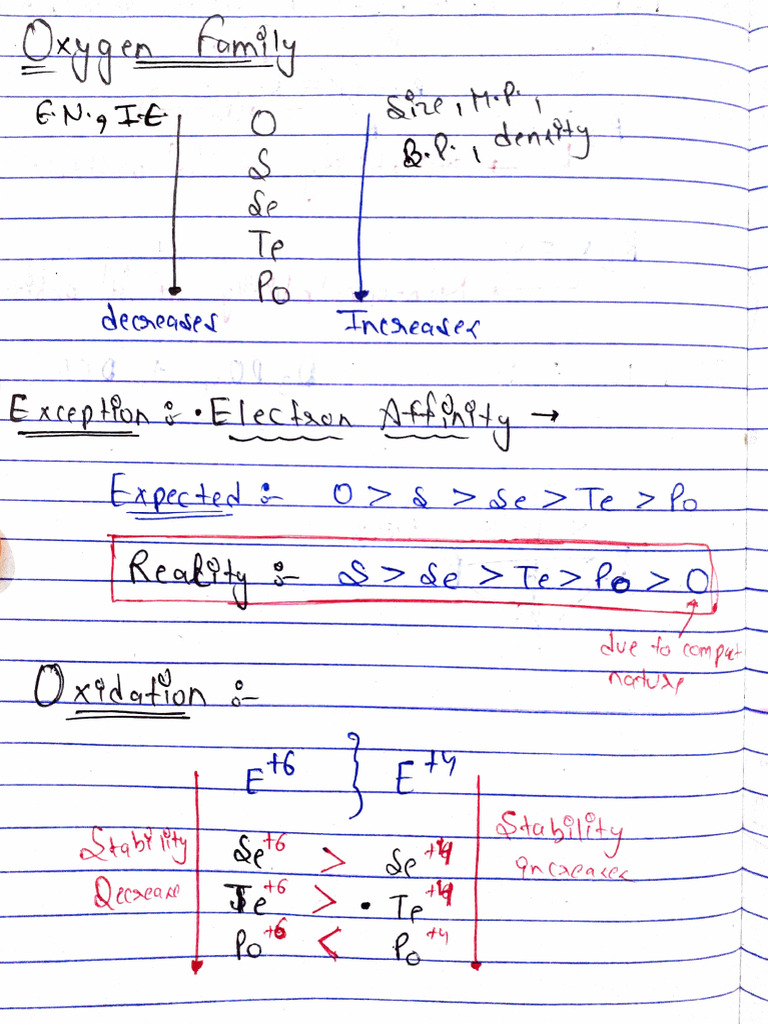 Oxygen Family
E.N., I.E
Size, M.P.,
B.P., density
O
S
Se
Te
Po
decreases
Increases
Exception :- • Electron Affinity →
Expected :- O > S > Se > Te > Po
Reality :- S > Se > Te > Po > O
due to compat
nature
Oxidation :-
E+6 } E+4
Stability
Decrease
Stability
increases
Se+6 > Se+4
Te+6 > • Te+4
Po+6 < Po+4